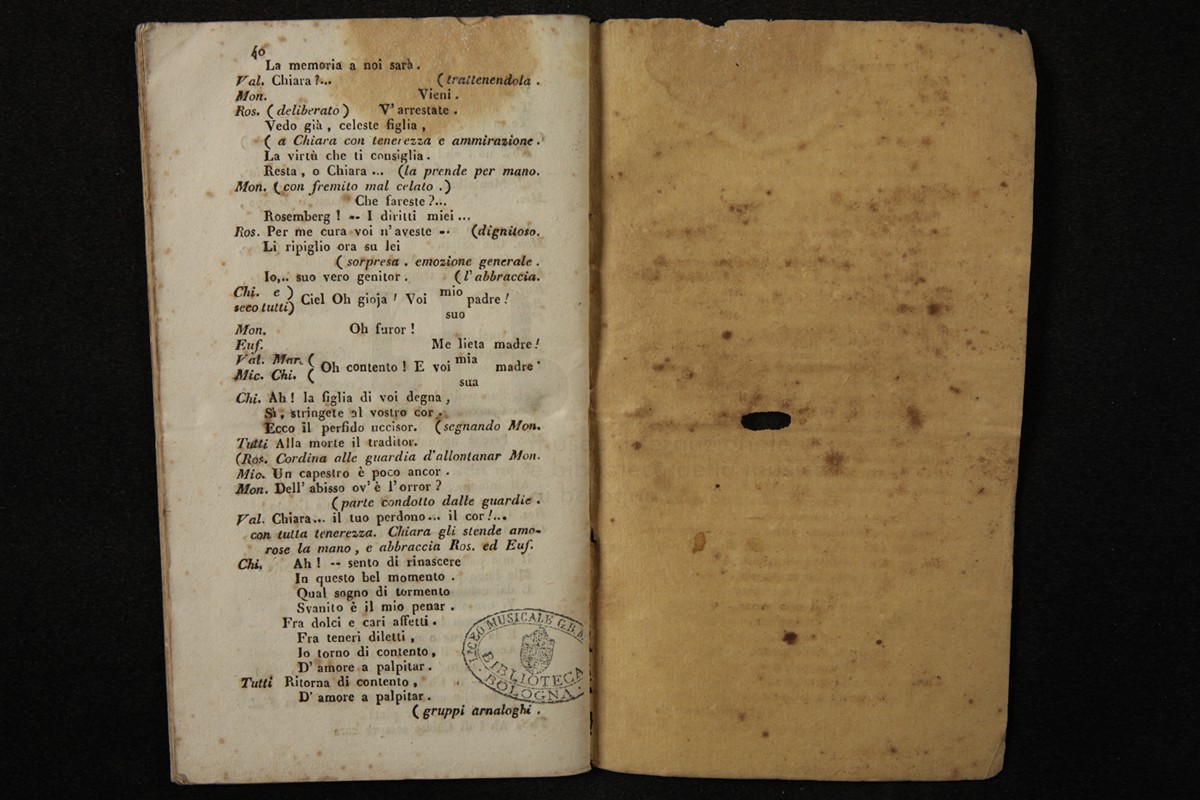 40
La memoria a noi sarà.
Val. Chiara?... (trattenendola.
Mon. Vieni.
Ros. (deliberato) V'arrestate.
Vedo già, celeste figlia,
(a Chiara con tenerezza e ammirazione.
La virtù che ti consiglia.
Resta, o Chiara... (la prende per mano.
Mon. (con fremito mal celato.)
Che fareste?...
Rosemberg! -- I diritti miei...
Ros. Per me cura voi n'aveste -- (dignitoso.
Li ripiglio ora su lei
(sorpresa. emozione generale.
Io,.. suo vero genitor. (l'abbraccia.
Chi. e )
seco tutti) Ciel Oh gioja! Voi mio padre!
suo
Mon. Oh furor!
Euf. Me lieta madre!
Val. Mar. (
Mic. Chi. ( Oh contento! E voi mia madre
sua
Chi. Ah! la figlia di voi degna,
Sì, stringete al vostro cor.
Ecco il perfido uccisor. (segnando Mon.
Tutti Alla morte il traditor.
(Ros. Cordina alle guardia d'allontanar Mon.
Mic. Un capestro è poco ancor.
Mon. Dell' abisso ov'è l'orror?
(parte condotto dalle guardie.
Val. Chiara... il tuo perdono... il cor!...
con tutta tenerezza. Chiara gli stende amo-
rose la mano, e abbraccia Ros. ed Euf.
Chi. Ah! -- sento di rinascere
In questo bel momento.
Qual sogno di tormento
Svanito è il mio penar.
Fra dolci e cari affetti.
Fra teneri diletti,
Io torno di contento,
D' amore a palpitar.
Tutti Ritorna di contento,
D' amore a palpitar.
(gruppi arnaloghi.
LICEO MUSICALE G.B.
BIBLIOTECA
BOLOGNA